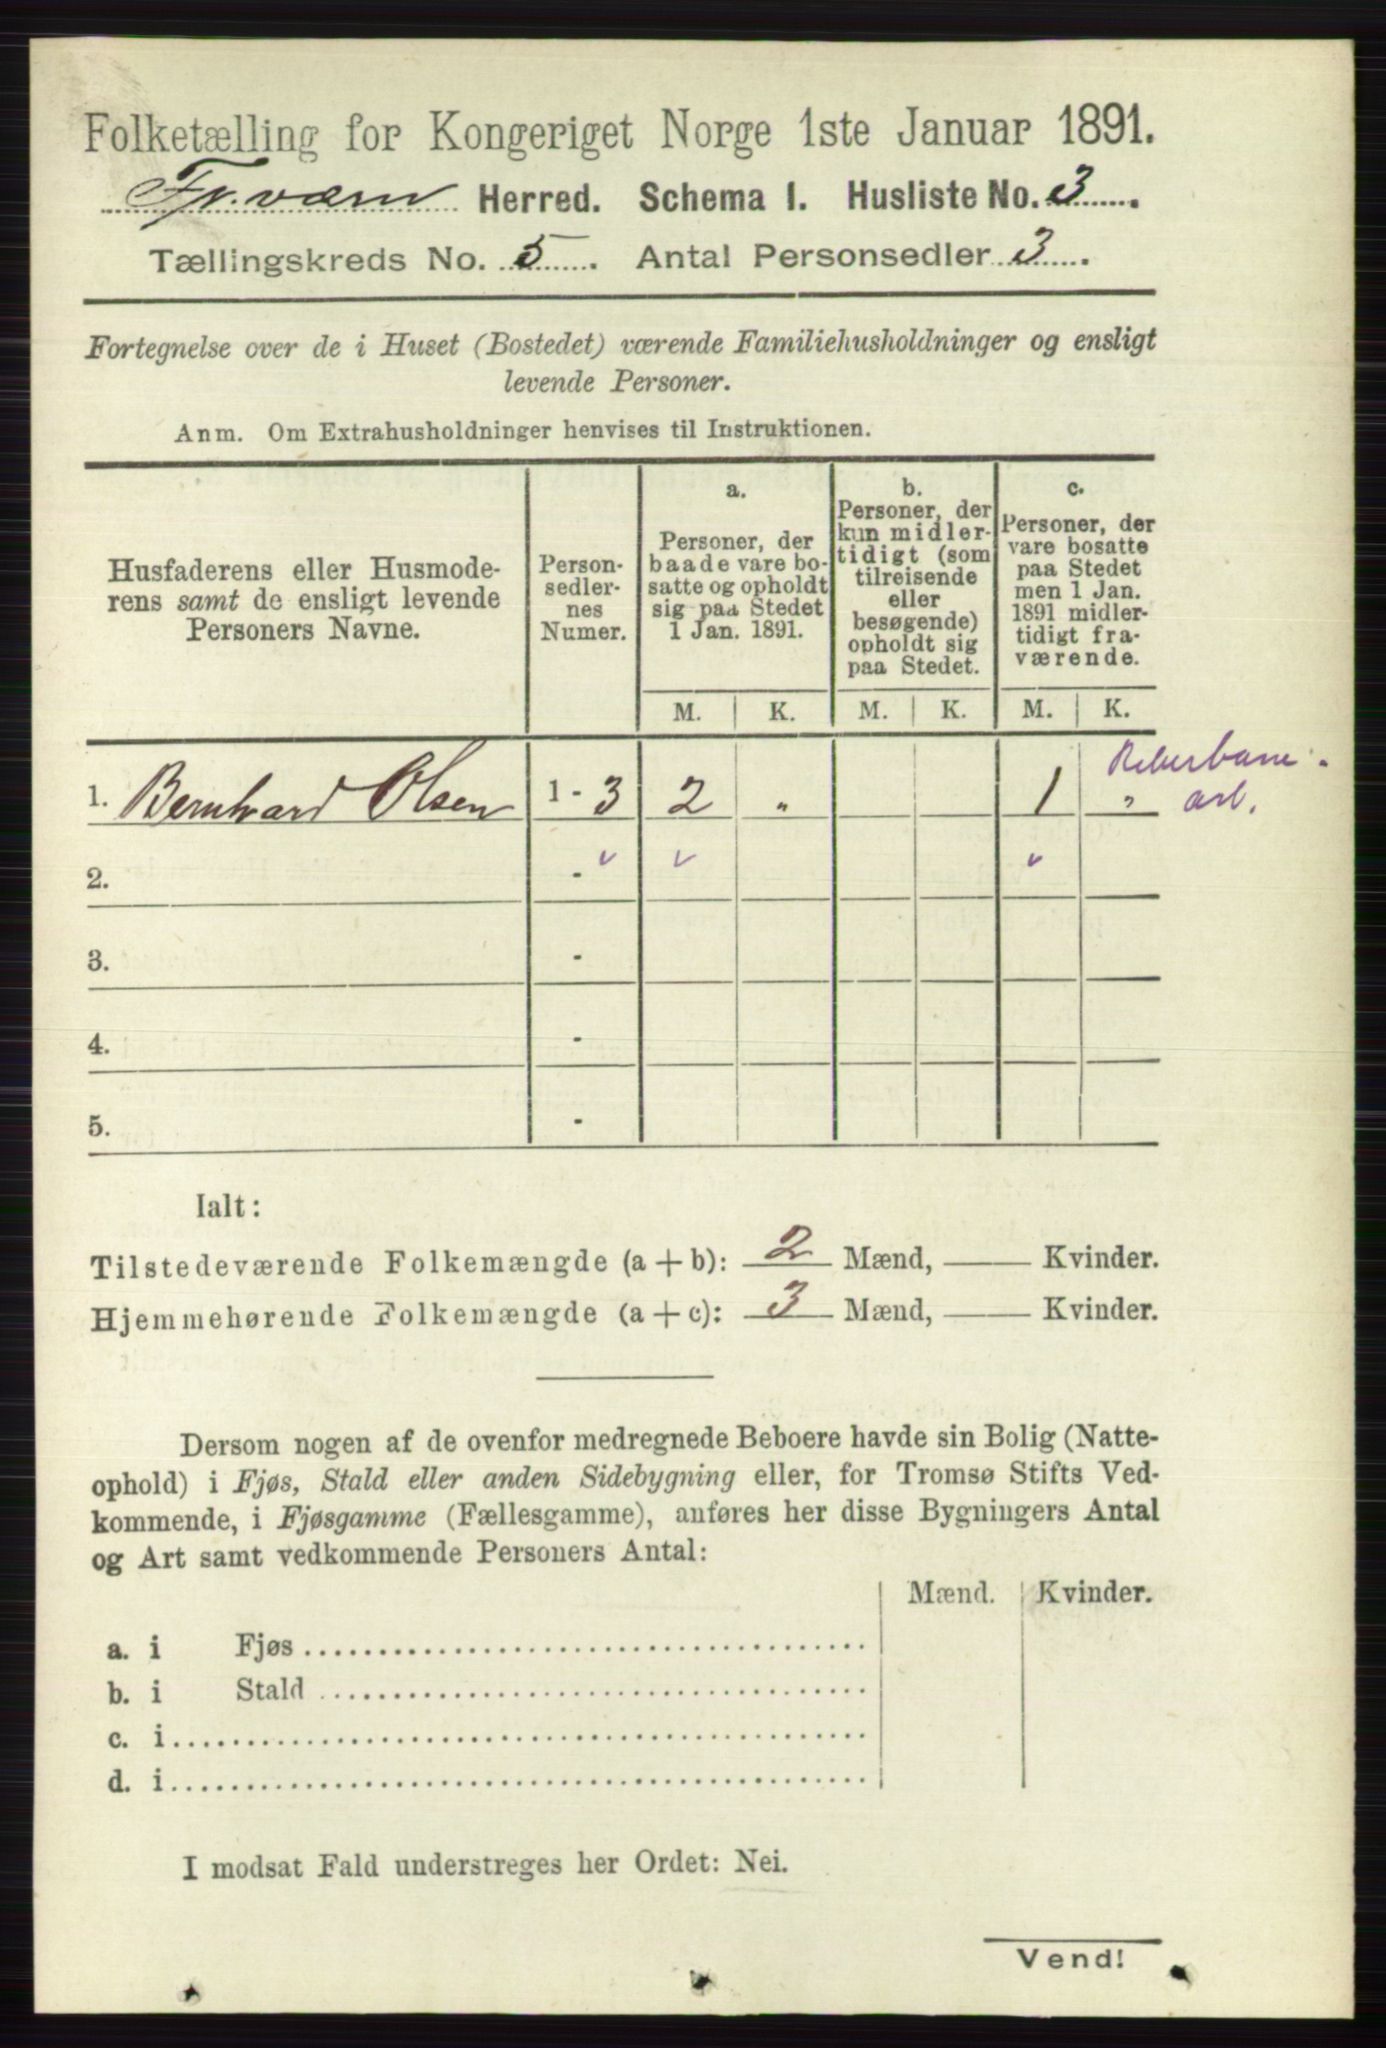 Folketælling for Kongeriget Norge 1ste Januar 1891.
Fr.værn Herred. Schema I. Husliste No. 3.
Tællingskreds No. 5. Antal Personsedler 3.
Fortegnelse over de i Huset (Bostedet) værende Familiehusholdninger og ensligt
levende Personer.
Anm. Om Extrahusholdninger henvises til Instruktionen.
Husfaderens eller Husmode-
rens samt de ensligt levende
Personers Navne.
Person-
sedler-
nes
Numer.
a.
Personer, der
baade vare bo-
satte og opholdt
sig paa Stedet
1 Jan. 1891.
b.
Personer, der
kun midler-
tidigt (som
tilreisende
eller
besøgende)
opholdt sig
paa Stedet.
c.
Personer, der
vare bosatte
paa Stedet
men 1 Jan.
1891 midler-
tidigt fra-
værende.
M. K. M. K. M. K.
1. Bernhard Olsen 1 - 3 2 " 1 "
Reberbane-
arb.
2. -
3. -
4. -
5. -
Ialt:
Tilstedeværende Folkemængde (a + b): 2 Mænd, — Kvinder.
Hjemmehørende Folkemængde (a + c): 3 Mænd, — Kvinder.
Dersom nogen af de ovenfor medregnede Beboere havde sin Bolig (Natte-
ophold) i Fjøs, Stald eller anden Sidebygning eller, for Tromsø Stifts Ved-
kommende, i Fjøsgamme (Fællesgamme), anføres her disse Bygningers Antal
og Art samt vedkommende Personers Antal:
Mænd. Kvinder.
a. i Fjøs
b. i Stald
c. i
d. i
I modsat Fald understreges her Ordet: Nei.
Vend!